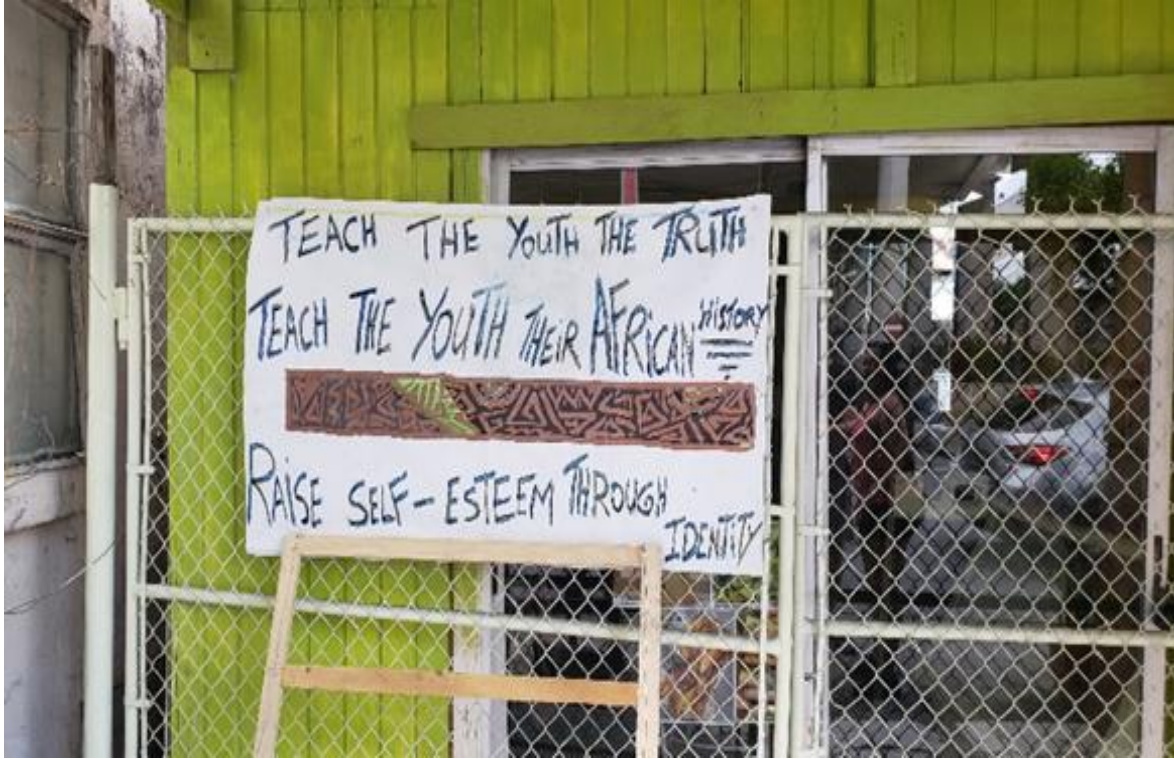 TEACH THE YOUTH THE TRUTH
TEACH THE YOUTH THEIR AFRICAN HISTORY
RAISE SELF-ESTEEM THROUGH
IDENTITY